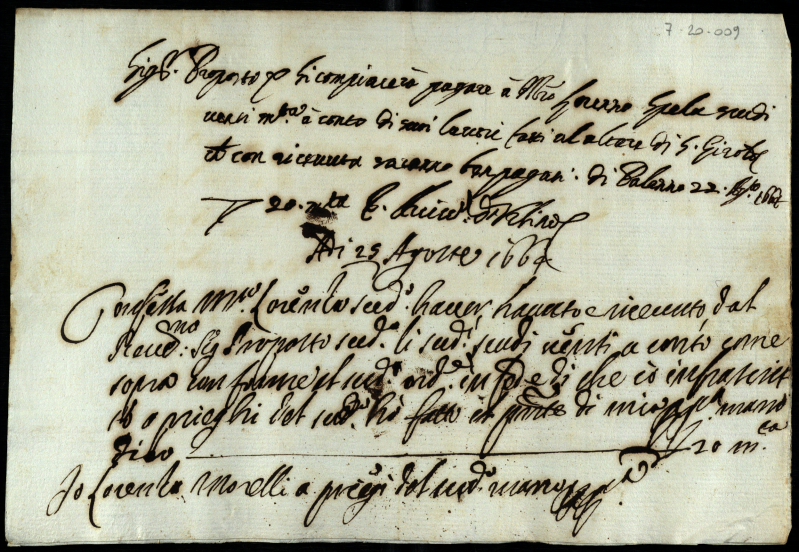 7-20-009
Sig.r Proposto si compiacerà pagare à Mro Lorenzo Spela scudi
venti m.ta à conto di suoi lavori fatti al altare di S. Girol.o
con ricevuta saranno ben pagati. di Palermo 22. Ag.to 1664
20 m.ta
Adi 25 Agosto 1664
Confessa m.ro Lorenzo sud.o haver havuto e ricevuto dal
Revd.mo Sig Proposto sud.o li sud.i scudi venti a conto come
sopra conforme al sud.o ord.e in fede di che io infrascrit
to a prieghi del sud.o hò fatto la pnte di mia ppa mano
dico 20 m.ta
Io Lorenzo Morelli a prieghi del sud.o mano ppa